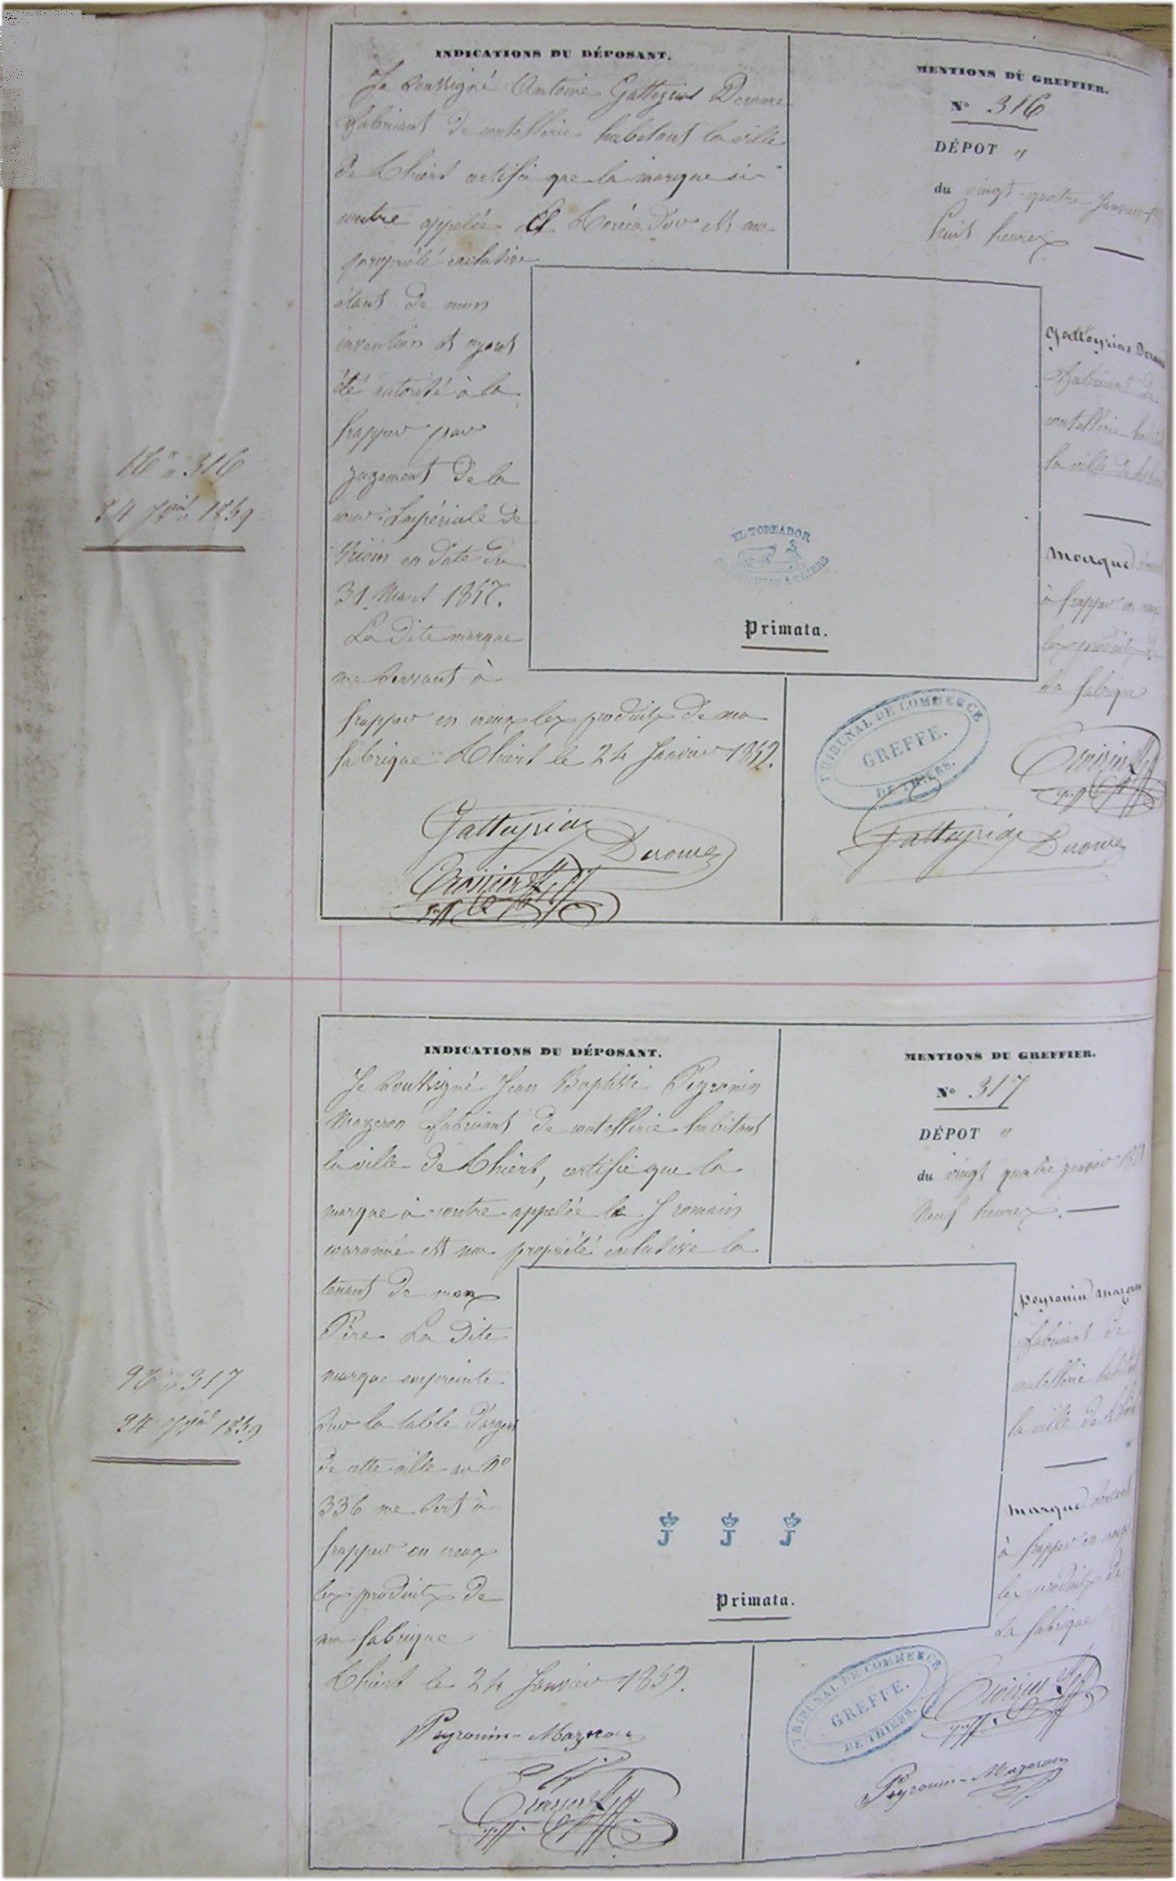 INDICATIONS DU DÉPOSANT.
Je soussigné Antoine Gatteyrias Derouve
fabricant de coutellerie habitant la ville
de Thiers certifie que la marque ci
contre appelée El Toréador est ma
propriété exclusive
étant de mon
invention et ayant
été autorisé à la
frapper par
jugement de la
cour Impériale de
Riom en date du
31 Mars 1857.
La dite marque
me servant à
frapper en creux les produits de ma
fabrique Thiers le 24 Janvier 1859.
Gatteyrias Derouve
MENTIONS DU GREFFIER.
N° 316
DÉPOT "
du vingt-quatre Janvier
huit heures
Gatteyrias
fabricant de
coutellerie
la ville de
marque
à frapper en creux
les produits de
sa fabrique
EL TOREADOR
THIERS
Primata.
TRIBUNAL DE COMMERCE
GREFFE.
DE THIERS.
Gatteyrias Derouve
n 316
24 1859
INDICATIONS DU DÉPOSANT.
Je soussigné Jean Baptiste Peyronin
Mazeron fabricant de coutellerie habitant
la ville de Thiers, certifie que la
marque ci contre appelée le J romain
couronné est ma propriété exclusive la
tenant de mon
Père La dite
marque empreinte
sur la table d'argent
de cette ville au N°
336 me sert à
frapper en creux
les produits de
ma fabrique
Thiers le 24 Janvier 1859.
Peyronin-Mazeron
MENTIONS DU GREFFIER.
N° 317
DÉPOT "
du vingt quatre janvier
Neuf heures.
Peyronin Mazeron
fabricant de
coutellerie habitant
la ville de Thiers
marque servant
à frapper en creux
les produits de
sa fabrique
J J J
Primata.
TRIBUNAL DE COMMERCE
GREFFE.
DE THIERS.
Peyronin-Mazeron
n 317
24 1859